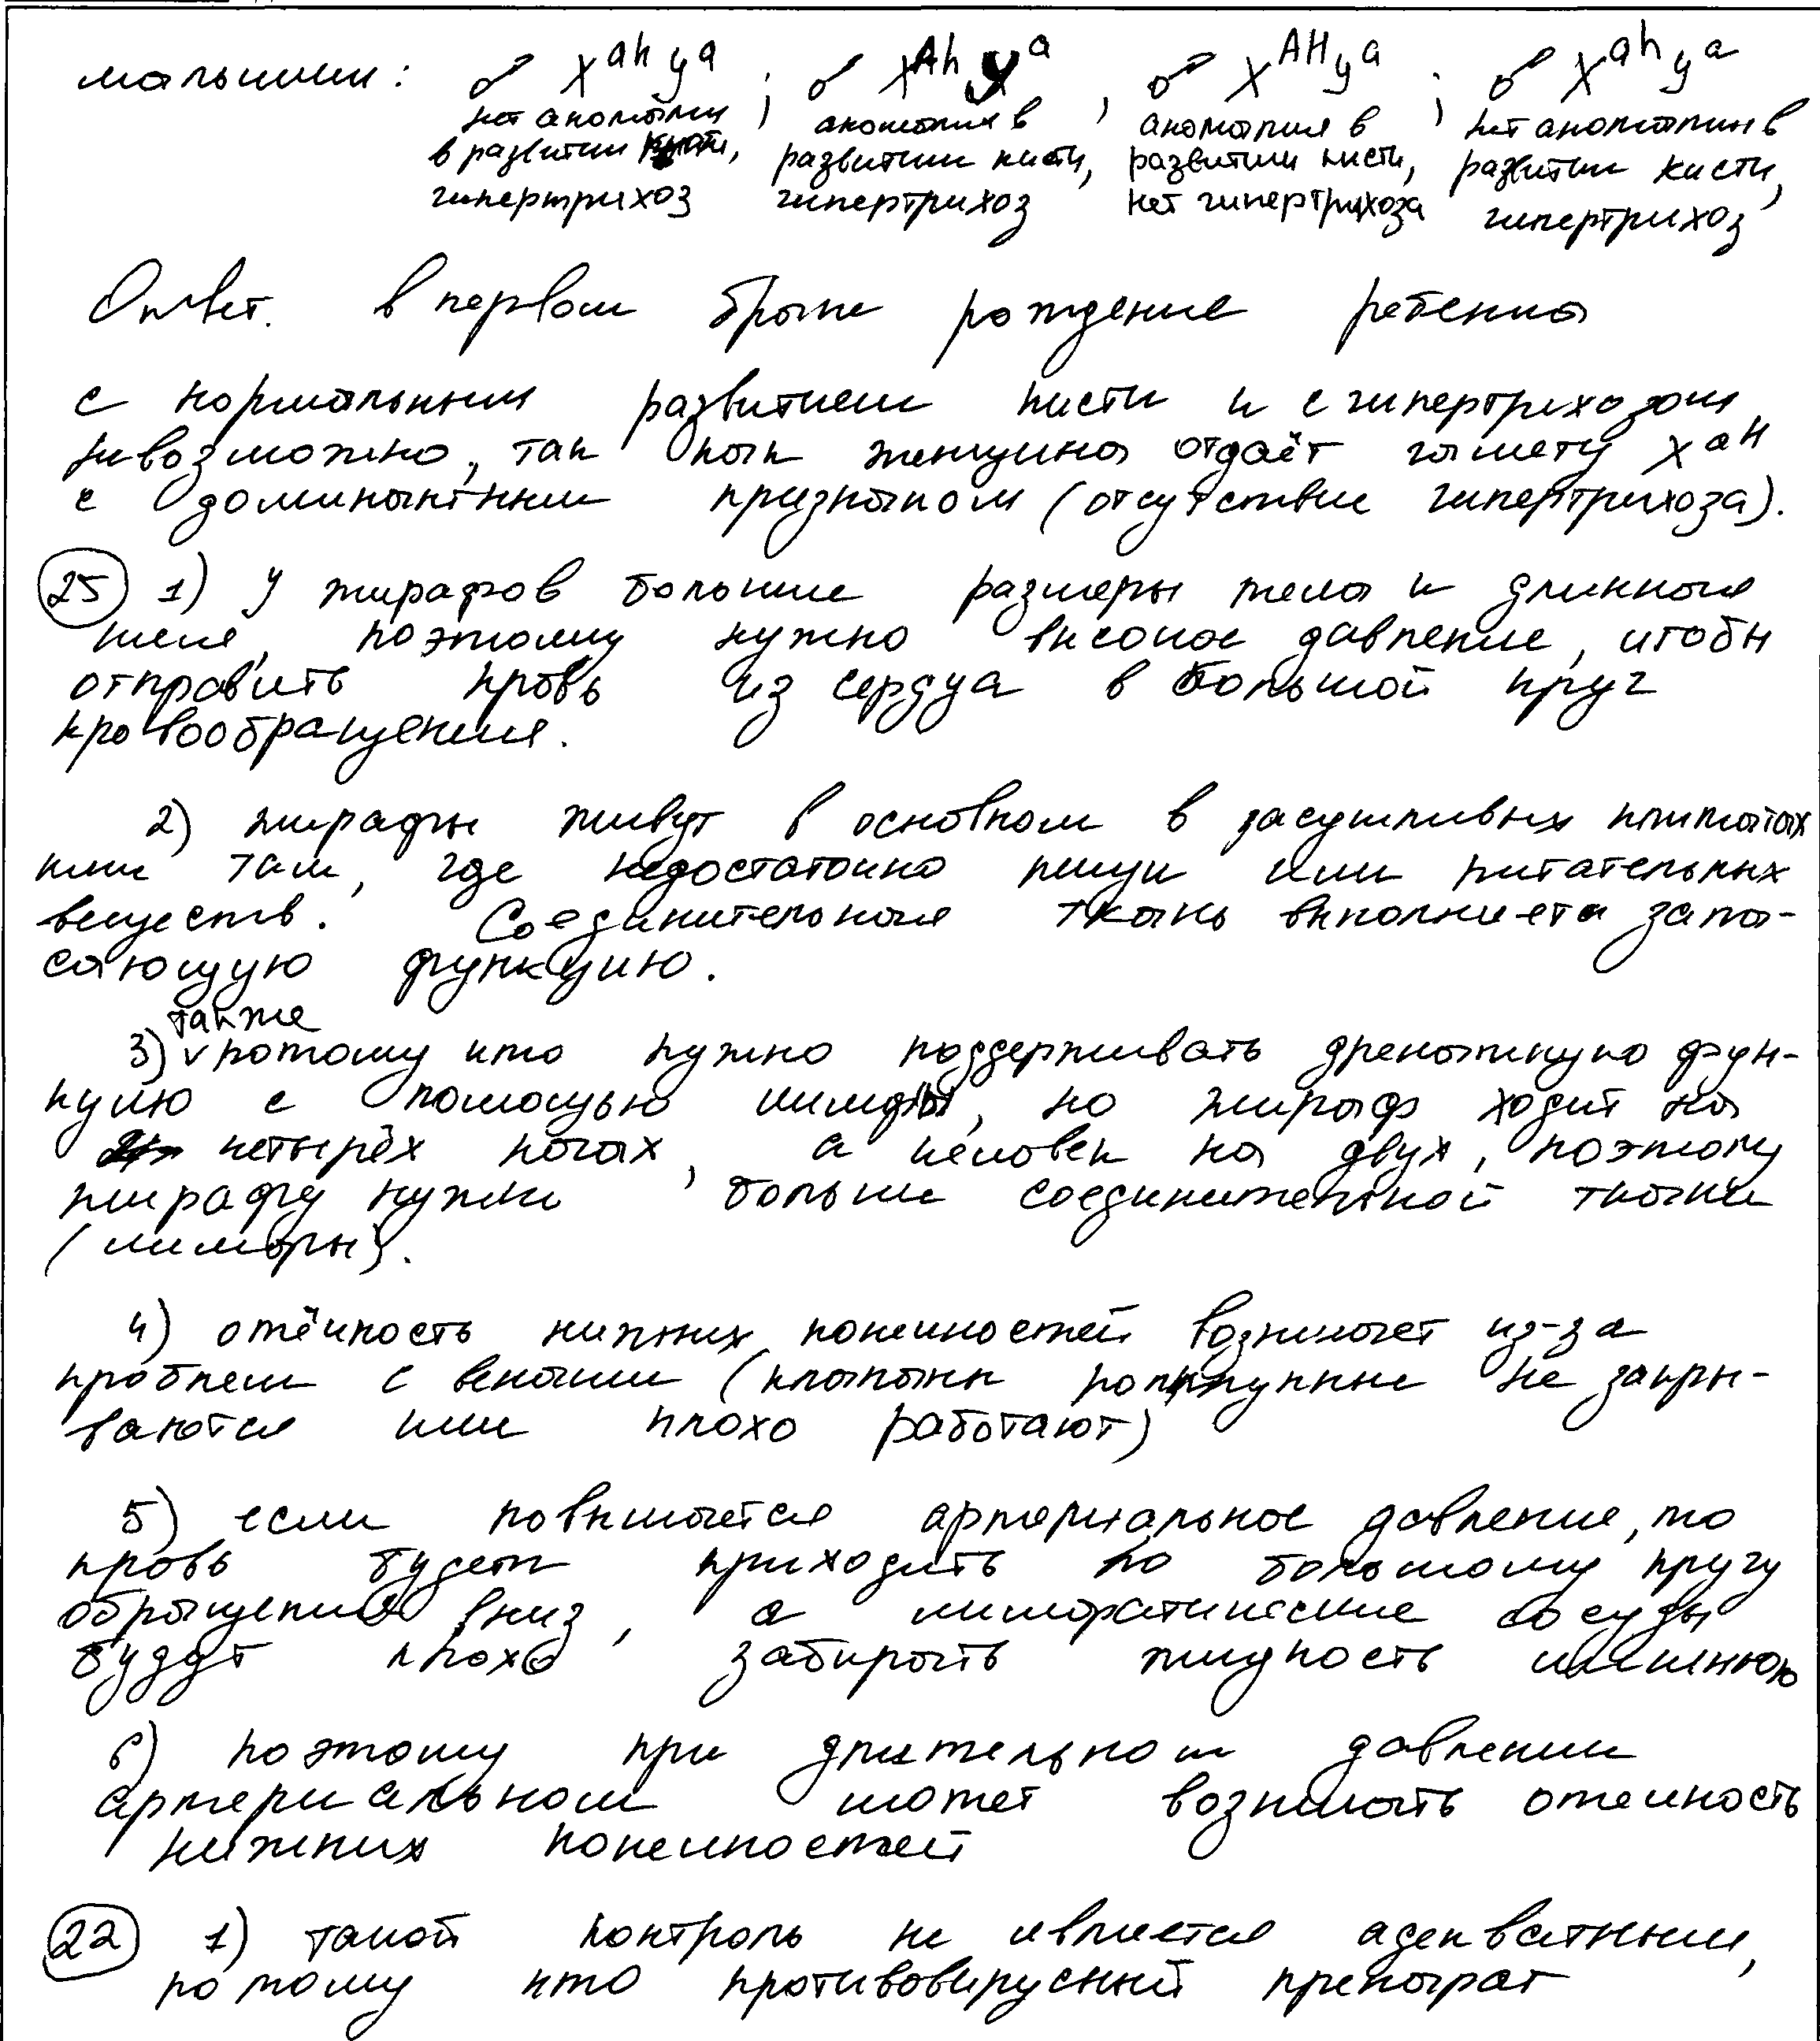 мальчики: ♂ X^ah y^a ; ♂ X^Ah y^a , ♂ X^AH y^a ; ♂ X^ah y^a
нет аномалии в развитии кисти, гипертрихоз
аномалия в развитии кисти, гипертрихоз
аномалия в развитии кисти, нет гипертрихоза
нет аномалии в развитии кисти, гипертрихоз
Ответ. в первом браке рождение ребенка
с нормальным развитием кисти и с гипертрихозом
невозможно, так как женщина отдаёт гамету X^aH
с доминантным признаком (отсутствие гипертрихоза).
25 1) У жирафов большие размеры тела и длинная
шея, поэтому нужно высокое давление, чтобы
отправить кровь из сердца в большой круг
кровообращения.
2) жирафы живут в основном в засушливых климатах
или там, где недостаточно пищи или питательных
веществ. Соединительная ткань выполняета запа-
сающую функцию.
3) также потому что нужно поддерживать дренажную фун-
кцию с помощью лимфы, но жираф ходит на
четырёх ногах, а человек на двух, поэтому
жирафу нужно больше соединительной ткани
(лимфы).
4) отёчность нижних конечностей возникает из-за
проблем с венами (клапаны полулунные не закры-
ваются или плохо работают)
5) если повышается артериальное давление, то
кровь будет приходить по большому кругу
обращения вниз, а лимфатические сосуды
будут плохо забирать жидкость лишнюю
6) поэтому при длительном давлении
артериальном может возникать отечность
нижних конечностей
22 1) такой контроль не является адекватным,
потому что противовирусный препарат